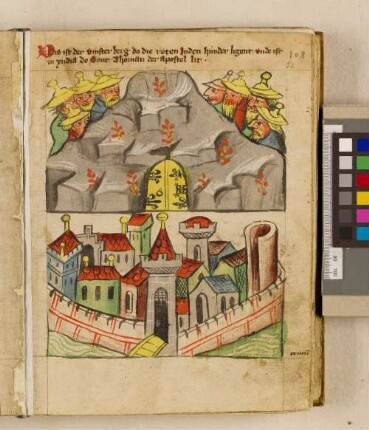 Das ist der vinster berg do die roten Juden hinder ligent unde ist
in yndia do Sant Thoman der apostel lit ·
108